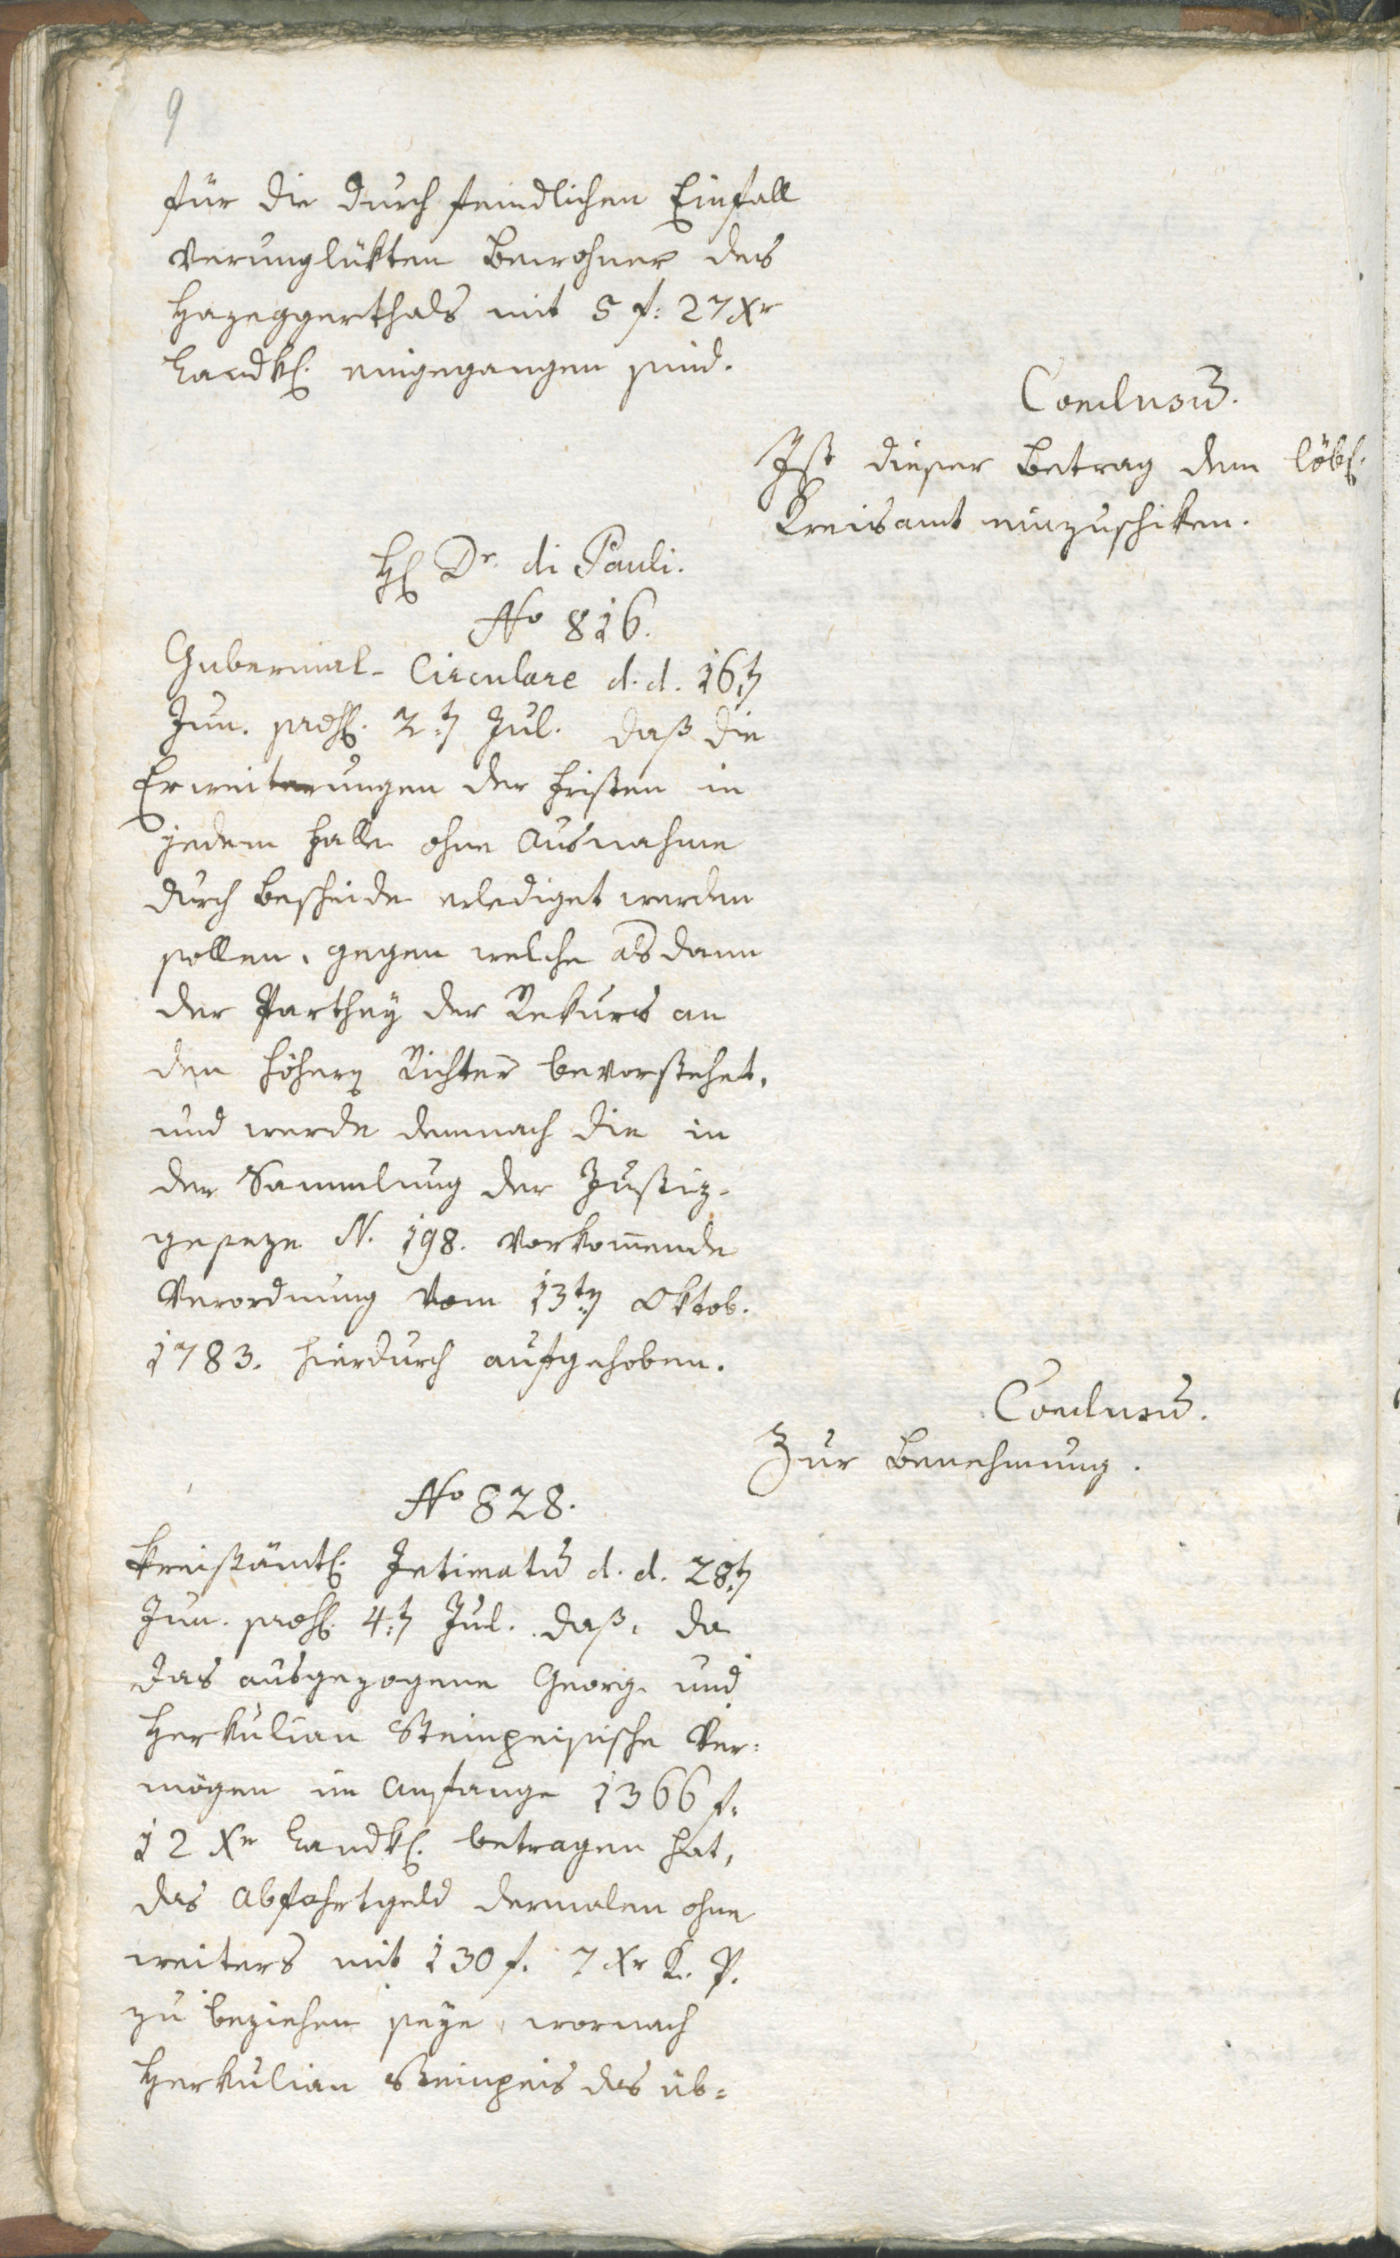 9
für die durch feindlichen Einfall
verunglükten Bewohner des
Hazeggerthals mit 5 f: 27 Xr
eingegangen sind.
Conclusum.
Ist dieser Betrag dem löbl.
Kreisamt einzuschiken.
H. Dr. di Pauli.
No 816.
Gubernial-Circulare d. d. 16tn
Jun. prdß. 2tn Jul. daß die
Erweiterungen der Fristen in
jedem Falle ohne Ausnahme
durch Bescheide erlediget werden
sollen, gegen welche alsdann
der Parthey der Rekurs an
den höhern Richter bevorstehet,
und werde demnach die in
der Sammlung der Justiz-
geseze N. 198. vorkom̅ende
Verordnung vom 13tn Oktob.
1783. hierdurch aufgehoben.
Conclusum.
Zur Benehmung.
No 828.
Kreisämtl. Intimatum d. d. 28tn
Jun. prdß. 4tn Jul. daß, da
das ausgezogene Georg- und
Herkulian Steinpeisische Ver=
mögen im Anfange 1366 f.
12 Xr betragen hat,
das Abfahrtgeld dermalen ohne
weiters mit 130 f. 7 Xr K. P.
zu beziehen seye, wornach
Herkulian Steinpeis das üb=